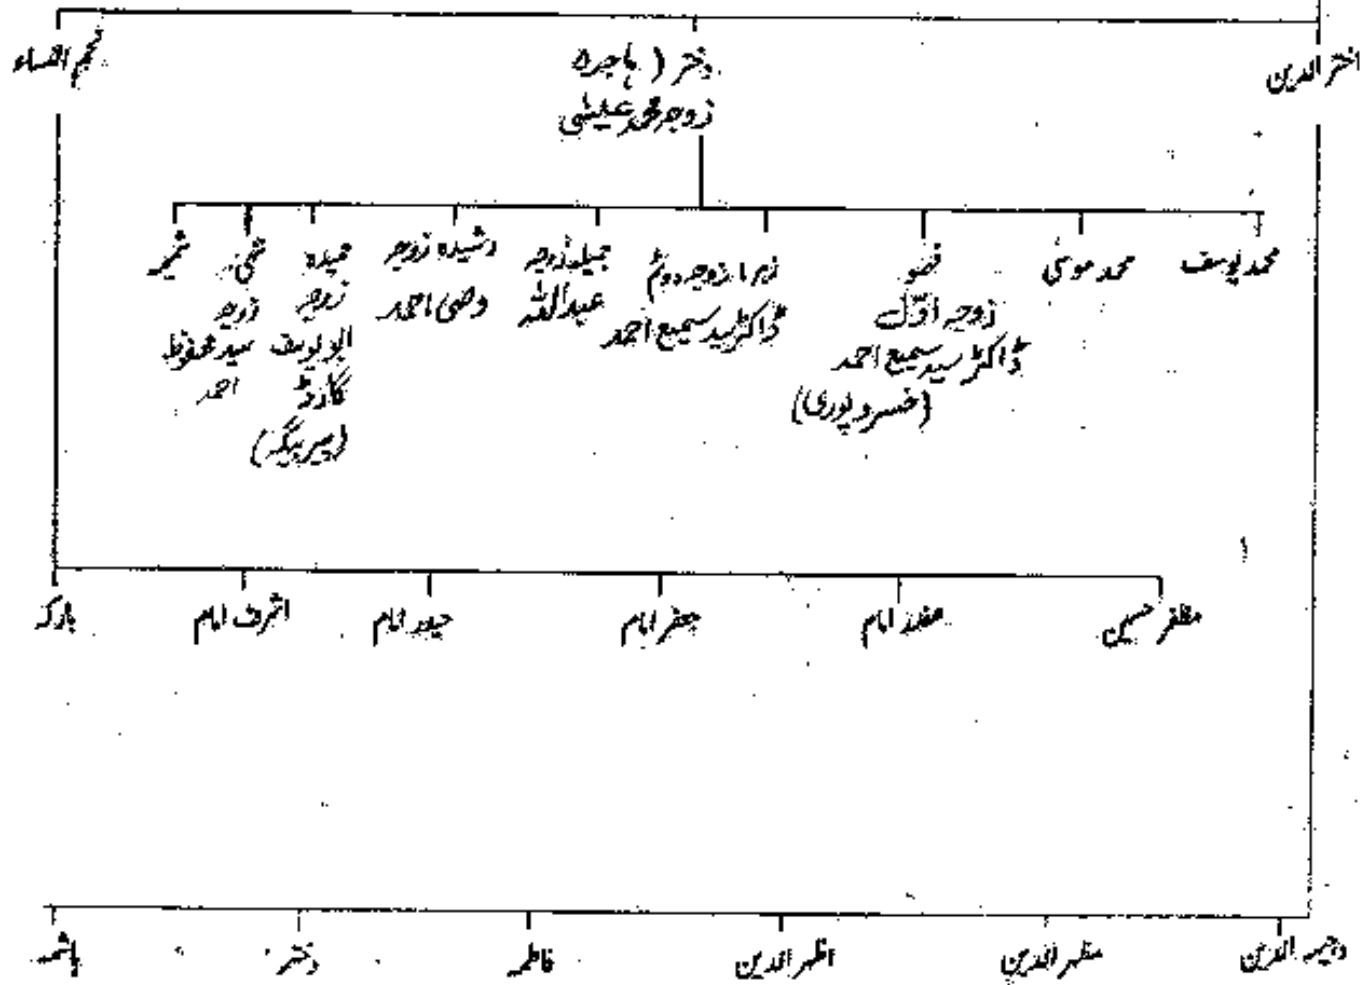 اختر الدین
دختر ( ہاجرہ
زوجہ محمد عیسٰی
نجم النساء
محمد یوسف
محمد موسٰی
زوجہ اوّل
ڈاکٹر سید سمیع احمد
(خسرو پوری)
زہرا زوجہ دوئم
ڈاکٹر سید سمیع احمد
جمیلہ زوجہ
عبداللہ
رشیدہ زوجہ
وصی احمد
حمیدہ
زوجہ
ابو یوسف
گارڈ
(پیر بیگہ)
زوجہ
سید محفوظ
احمد
مظفر حسین
صفدر امام
جعفر امام
حیدر امام
اشرف امام
وجیہہ الدین
مظہر الدین
اظہر الدین
فاطمہ
دختر